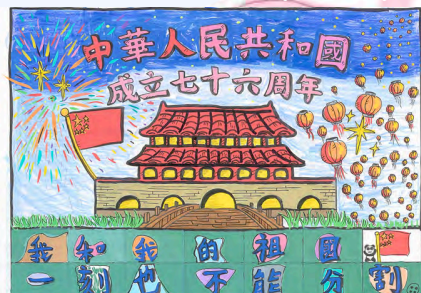 中華人民共和國
成立七十六周年
我和我的祖国
一刻也不能分割